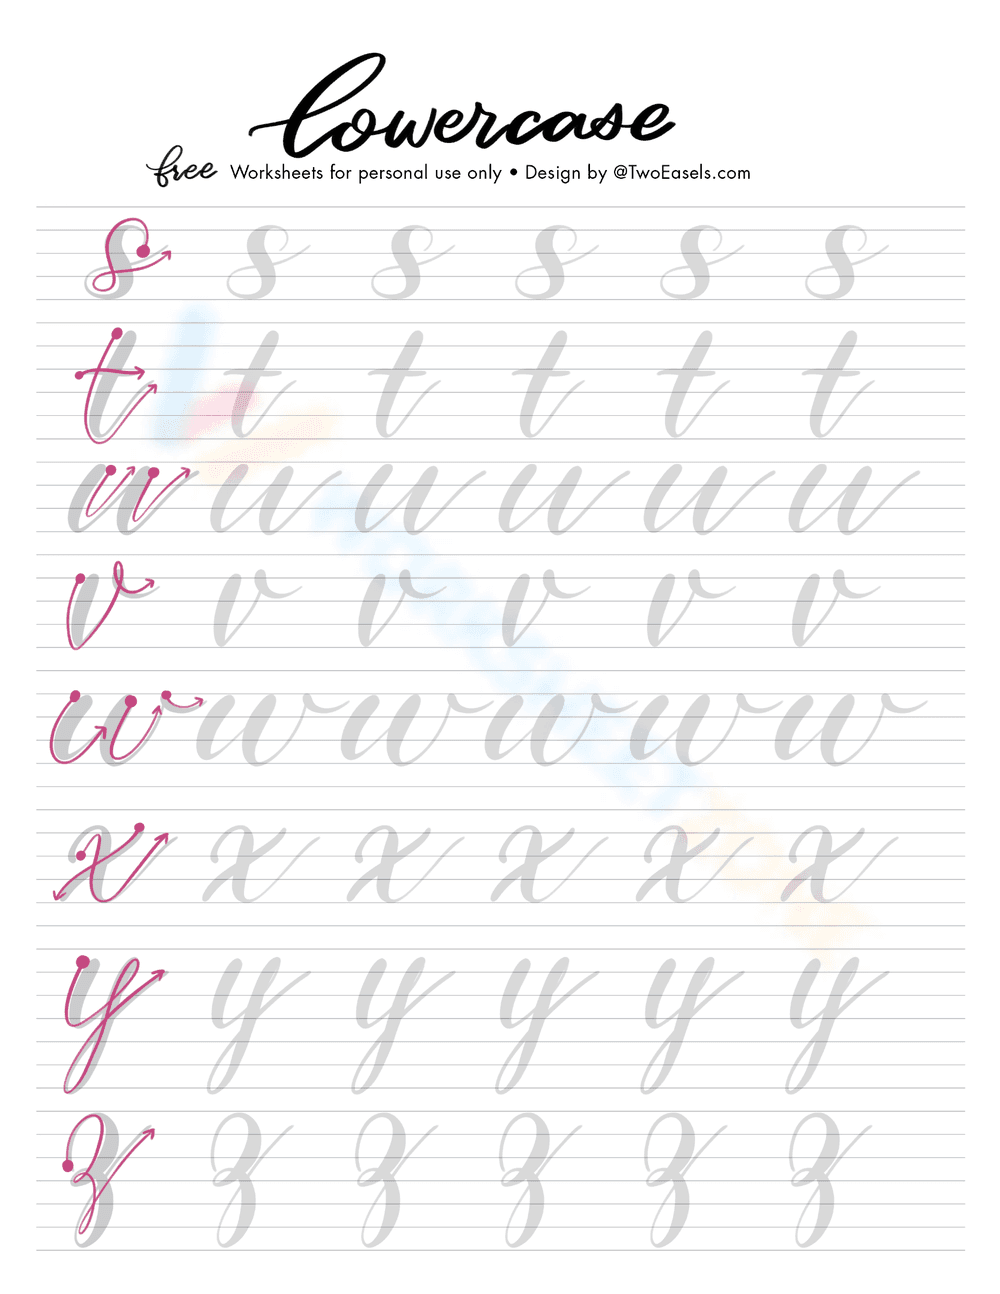 lowercase
free Worksheets for personal use only • Design by @TwoEasels.com
s s s s s s
t t t t t t
u u u u u u
v v v v v v
w w w w w w
x x x x x x
y y y y y y
z z z z z z
WORKSHEETZONE